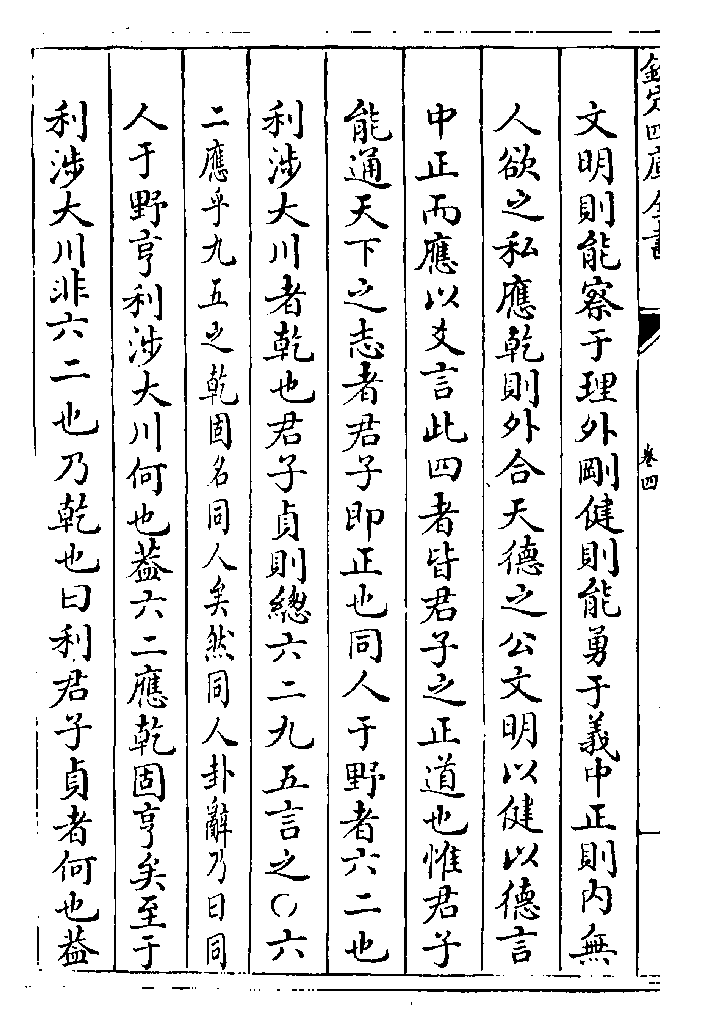 欽定四庫全書
卷四
文明則能察于理外剛健則能勇于義中正則内無
人欲之私應乾則外合天德之公文明以健以德言
中正而應以爻言此四者皆君子之正道也惟君子
能通天下之志者君子即正也同人于野者六二也
利涉大川者乾也君子貞則總六二九五言之〇六
二應乎九五之乾固名同人矣然同人卦辭乃曰同
人于野亨利涉大川何也葢六二應乾固亨矣至于
利涉大川非六二也乃乾也曰利君子貞者何也葢